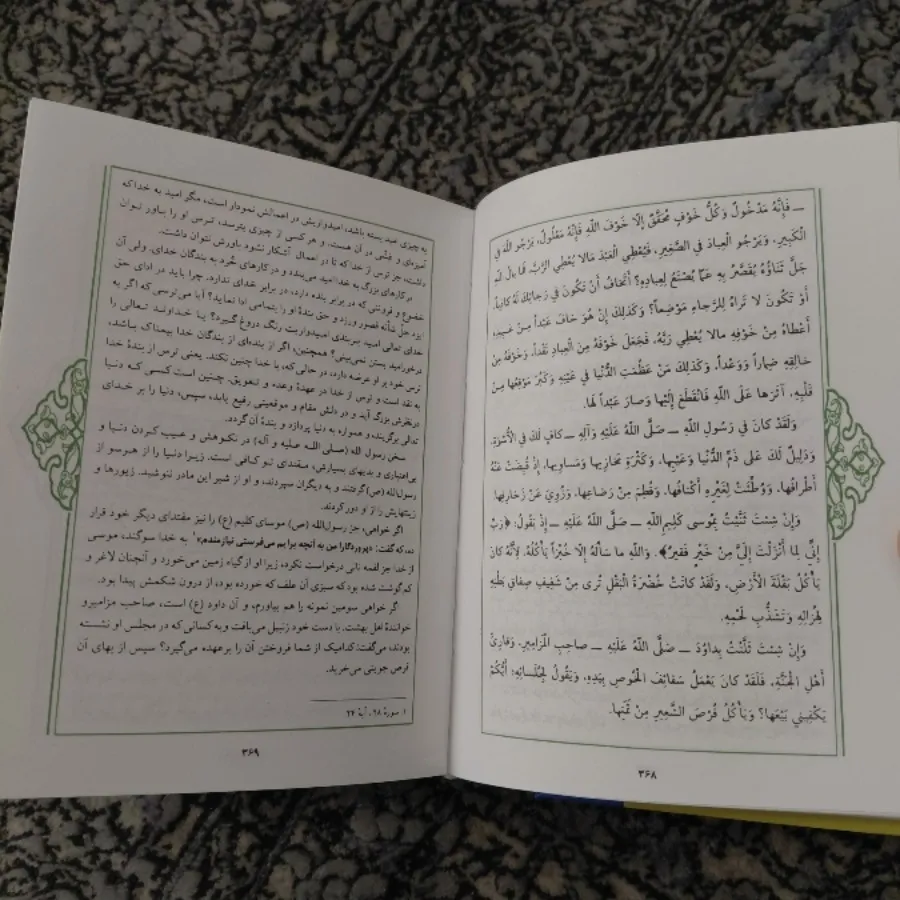 ـ فَإِنَّهُ مَدْخُولٌ وَكُلُّ خَوْفٍ مُحَقَّقٌ إِلَّا خَوْفَ اللَّهِ فَإِنَّهُ مَعْلُولٌ، يَرْجُو اللَّهَ فِي
الْكَبِيرِ، وَيَرْجُو الْعِبَادَ فِي الصَّغِيرِ، فَيُعْطِي الْعَبْدَ مَالا يُعْطِي الرَّبَّ، فَمَا بَالُ اللَّهِ
جَلَّ ثَنَاؤُهُ يُقَصَّرُ بِهِ عَمَّا يُصْنَعُ لِعِبَادِهِ؟ أَتَخَافُ أَنْ تَكُونَ فِي رَجَائِكَ لَهُ كَاذِباً،
أَوْ تَكُونَ لا تَرَاهُ لِلرَّجَاءِ مَوْضِعاً؟ وَكَذلِكَ إِنْ هُوَ خَافَ عَبْداً مِنْ عَبِيدِهِ
أَعْطَاهُ مِنْ خَوْفِهِ مالا يُعْطِي رَبَّهُ، فَجَعَلَ خَوْفَهُ مِنَ الْعِبَادِ نَقْداً، وَخَوْفَهُ مِنْ
خَالِقِهِ ضِمَاراً وَوَعْداً، وَكَذلِكَ مَنْ عَظُمَتِ الدُّنْيَا فِي عَيْنِهِ وَكَبُرَ مَوْقِعُهَا مِنْ
قَلْبِهِ، آثَرَهَا عَلَى اللَّهِ فَانْقَطَعَ إِلَيْهَا وَصَارَ عَبْداً لَهَا.
وَلَقَدْ كَانَ فِي رَسُولِ اللَّهِ ـ صَلَّى اللَّهُ عَلَيْهِ وَآلِهِ ـ كَافٍ لَكَ فِي الْأُسْوَةِ،
وَدَلِيلٌ لَكَ عَلَى ذَمِّ الدُّنْيَا وَعَيْبِهَا، وَكَثْرَةِ مَخَازِيهَا وَمَسَاوِيهَا، إِذْ قُبِضَتْ عَنْهُ
أَطْرَافُهَا، وَوُطِّئَتْ لِغَيْرِهِ أَكْنَافُهَا، وَفُطِمَ مِنْ رَضَاعِهَا، وَزُوِيَ عَنْ زَخَارِفِهَا.
وَإِنْ شِئْتَ ثَنَّيْتُ بِمُوسى كَلِيمِ اللَّهِ ـ صَلَّى اللَّهُ عَلَيْهِ ـ إِذْ يَقُولُ: ﴿رَبِّ
إِنِّي لِمَا أَنْزَلْتَ إِلَيَّ مِنْ خَيْرٍ فَقِيرٌ﴾. وَاللَّهِ ما سَأَلَهُ إِلَّا خُبْزاً يَأْكُلُهُ، لِأَنَّهُ كَانَ
يَأْكُلُ بَقْلَةَ الْأَرْضِ، وَلَقَدْ كَانَتْ خُضْرَةُ الْبَقْلِ تُرى مِنْ شَفِيفِ صِفَاقِ بَطْنِهِ
لِهُزَالِهِ وَتَشَذُّبِ لَحْمِهِ.
وَإِنْ شِئْتَ ثَلَّثْتُ بِدَاوُدَ ـ صَلَّى اللَّهُ عَلَيْهِ ـ صَاحِبِ الْمَزَامِيرِ، وَقَارِئِ
أَهْلِ الْجَنَّةِ، فَلَقَدْ كَانَ يَعْمَلُ سَفَائِفَ الْخُوصِ بِيَدِهِ، وَيَقُولُ لِجُلَسَائِهِ: أَيُّكُمْ
يَكْفِينِي بَيْعَهَا؟ وَيَأْكُلُ قُرْصَ الشَّعِيرِ مِنْ ثَمَنِهَا.
۳۶۸
به چیزی امید بسته باشد، امیدواریش در اعمالش نمودار است، مگر امید به خدا که
آمیزه‌ای و غشی در آن هست. و هر کسی از چیزی بترسد، ترس او را باور توان
داشت، جز ترس از خدا که تا در اعمال آشکار نشود باورش نتوان داشت.
در کارهای بزرگ به خدا امید می‌بندد و در کارهای خُرد به بندگان خدای. ولی آن
خضوع و فروتنی که در برابر بنده دارد، در برابر خدای ندارد. چرا باید در ادای حق
ایزد جلّ ثنائه قصور ورزد و حق بندهٔ او را بتمامی ادا نماید؟ آیا می‌ترسی که اگر به
خدای تعالی امید بربندی امیدواریت رنگ دروغ گیرد؟ یا خداوند تعالی را
درخور امید بستن نمی‌بینی؟ همچنین، اگر از بنده‌ای از بندگان خدا بیمناک باشد،
ترس خود بر او عرضه دارد، در حالی که، با خدا چنین نکند. یعنی ترس از بندهٔ خدا
به نقد است و ترس از خدا در عهدهٔ وعده و تعویق. چنین است کسی که دنیا
در نظرش بزرگ آید و در دلش مقام و موقعیتی رفیع یابد، سپس، دنیا را بر خدای
تعالی برگزیند، و همواره به دنیا پردازد و بندهٔ آن گردد.
سخن رسول الله (صلی الله علیه و آله) در نکوهش و عیب کردن دنیا و
بی‌اعتباری و بدیهای بسیارش، مقتدای تو کافی است. زیرا دنیا را از هر سو از
رسول‌الله (ص) گرفتند و به دیگران سپردند، و او از شیر این مادر ننوشید. زیورها و
زینتهایش را از او دور کردند.
اگر خواهی، جز رسول‌الله (ص) موسای کلیم (ع) را نیز مقتدای دیگر خود قرار
ده، که گفت: «پروردگارا من به آنچه برایم می‌فرستی نیازمندم»۱ به خدا سوگند، موسی
از خدا جز لقمه نانی درخواست نکرد، زیرا او از گیاه زمین می‌خورد و آنچنان لاغر و
کم‌گوشت شده بود که سبزی آن علف که خورده بود، از درون شکمش پیدا بود.
گر خواهی سومین نمونه را هم بیاورم، و آن داود (ع) است، صاحب مزامیر و
خوانندهٔ اهل بهشت. با دست خود زنبیل می‌بافت و به کسانی که در مجلس او نشسته
بودند، می‌گفت: کدامیک از شما فروختن آن را برعهده می‌گیرد؟ سپس از بهای آن
قرص جوینی می‌خرید.
۱. سورهٔ ۲۸، آیهٔ ۲۴
۳۶۹